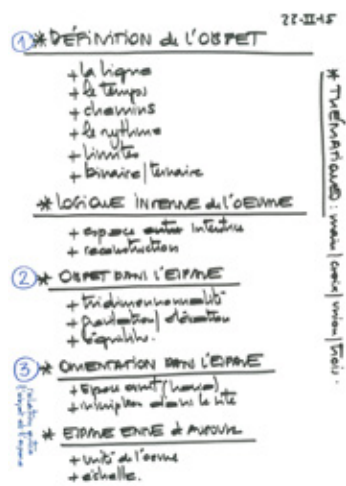 22-II-15
① * DÉFINITION de L'OBJET
+ la ligne
+ le temps
+ chemins
+ le rythme
+ limites
+ binaire/ternaire
* LOGIQUE INTERNE de L'OEUVRE
+ espace entre
+ reconstruction
② * OBJET DANS L'ESPACE
+ tridimensionnalité
+ gravitation/élévation
+ équilibre.
③ * ORIENTATION DANS L'ESPACE
+ Espace
+ inscription dans le site
* ESPACE ENTRE & AUTOUR
+ unité de l'oeuvre
+ échelle.
* THÉMATIQUES : main/croix/union/trois.
relation entre
l'objet et l'espace